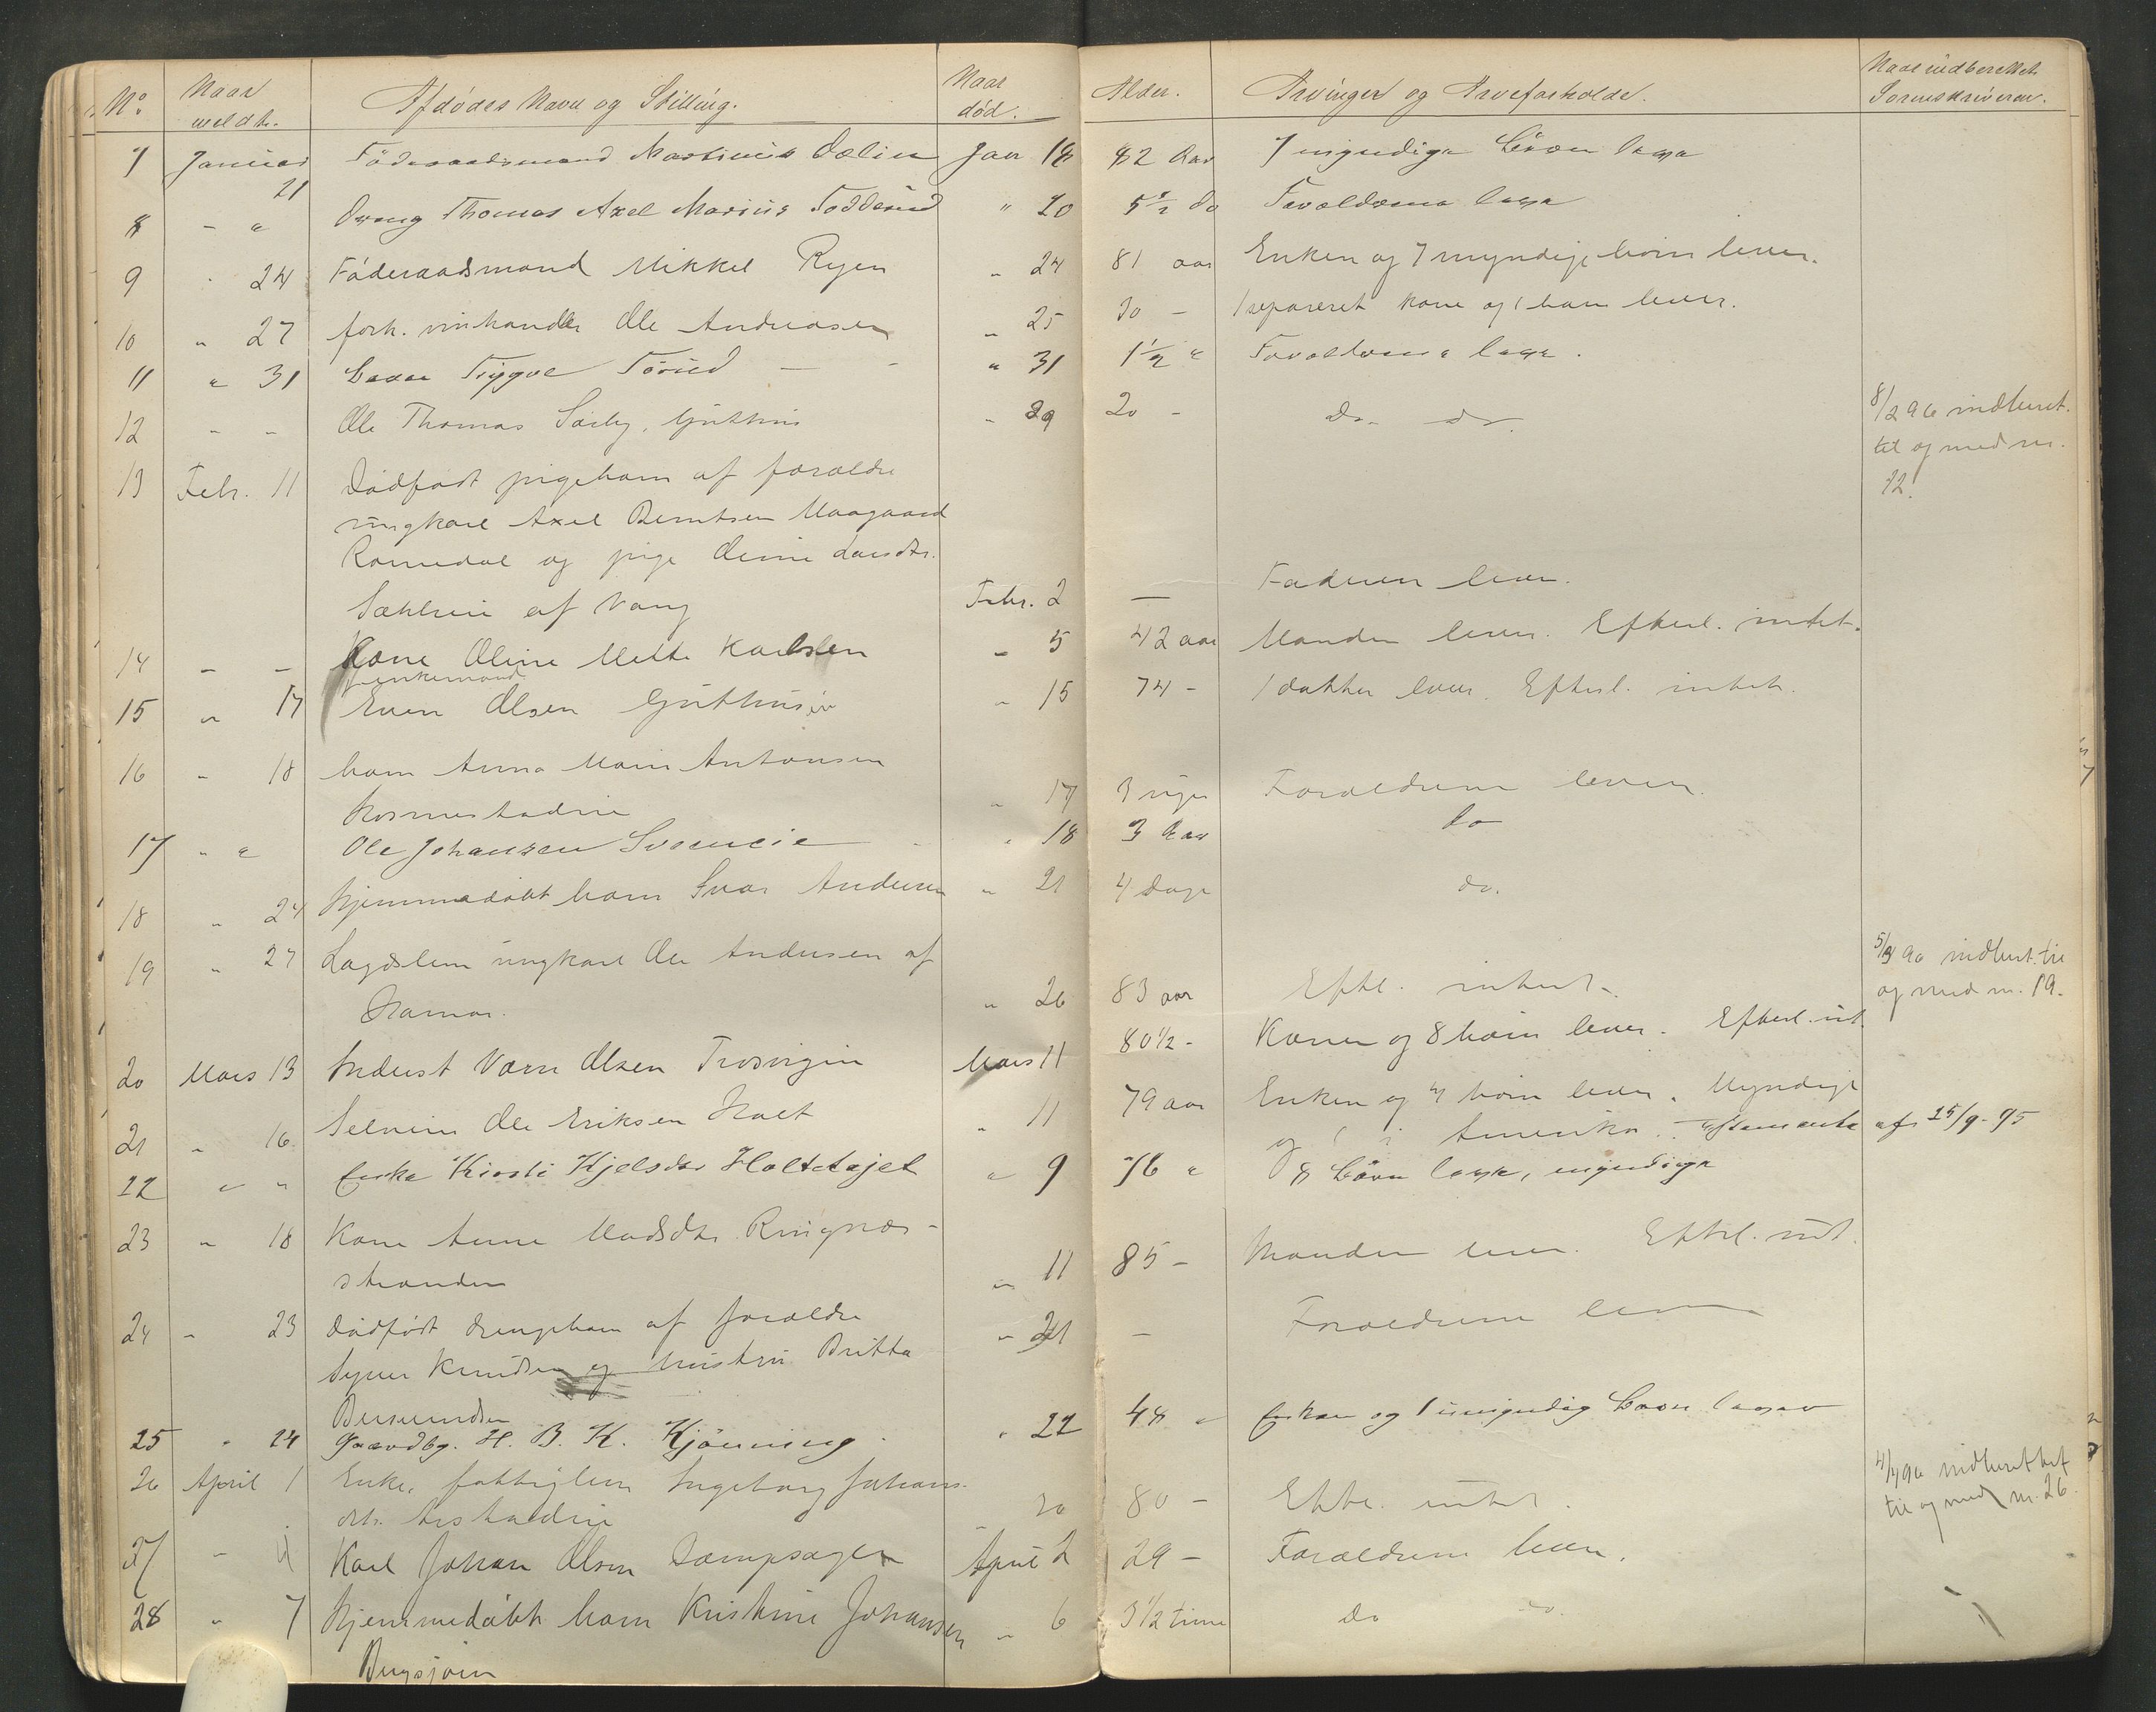 No. Naar meldt. Afdødes Navn og Stilling. Naar død. Alder. Arvinger og Arveforholde. Naar indberettet Sorenskriveren.
7 Januar 21 Föderaadsmand Martinus Dælin Jan 18 82 Aar 7 myndige Börn leve
8 - " Dreng Thomas Axel Marius Todderud " 20 5½ do Forældrene leve
9 " 24 Föderaadsmand Mikkel Ryen " 24 81 aar Enken og 7 myndige børn lever.
10 " 27 forh. vinhandler Ole Andreasen " 25 30 - 1 separeret kone og 1 barn lever.
11 " 31 Barn Trygve - - " 31 1½ " Forældrene leve.
12 - - Ole Thomas Sæly, - 29 20 - Do. do. 8/2 96 indberet.
til og med nr.
12.
13 Febr. 11 Dødfødt pigebarn af forældre
ungkarl Axel Berntsen Maagaard
Romedal og pige Larsdtr.
af Vang Febr. 2 — Faderen lever.
14 - - Kone Oline Mette Karlsen " 5 42 aar Manden lever. Efterl. intet.
enkemand
15 " 17 Even Olsen " 15 74 - 1 datter lever. Efterl. intet.
16 " 18 barn Anna Marie Antonsen
" 17 3 uger Forældrene lever.
17 " " Ole Johansen " 18 3 Aar Do
18 " 24 hjemmedøbt barn Andersen " 21 4 dage do.
19 " 27 Lægdslem ungkarl Ole Andersen af
Hamar. " 26 83 aar Efterl. intet. 5/3 96 indberet. til
og med nr. 19.
20 Mars 13 Inderst Olsen Mars 11 80½ - Konen og 8 børn lever. Efterl. int.
21 " 16 Selveier Ole Eriksen Holt " 11 79 aar Enken og 4 børn lever. Myndige
og 1 i Amerika. Testamente af 25/9-95
22 " " Enke Kirsti Kjelsdtr Holtetajet " 9 76 " 8 Börn leve, myndige
23 " 18 Kone Anne Madsdtr. Ringnes-
stranden " 11 85 - Manden lever. Efterl. int.
24 " 23 dødfødt drengebarn af forældre " 21 - Forældrene lever
Syver Knudsen og hustru Britta
25 " 24 Gaardbr. H. B. K. Kjönning " 22 48 " Enken og 1 umyndig Barn lever
26 April 1 Enke, fattiglem Ingeborg Johans-
dtr. 30 80 - Efterl. intet. 4/4 96 indberettet
til og med nr. 26.
27 - 4 Karl Johan Olsen Dampsagen April 2 29 - Forældrene lever.
28 " 7 hjemmedøbt barn Kristine Johansen " 6 3½ time Do do.